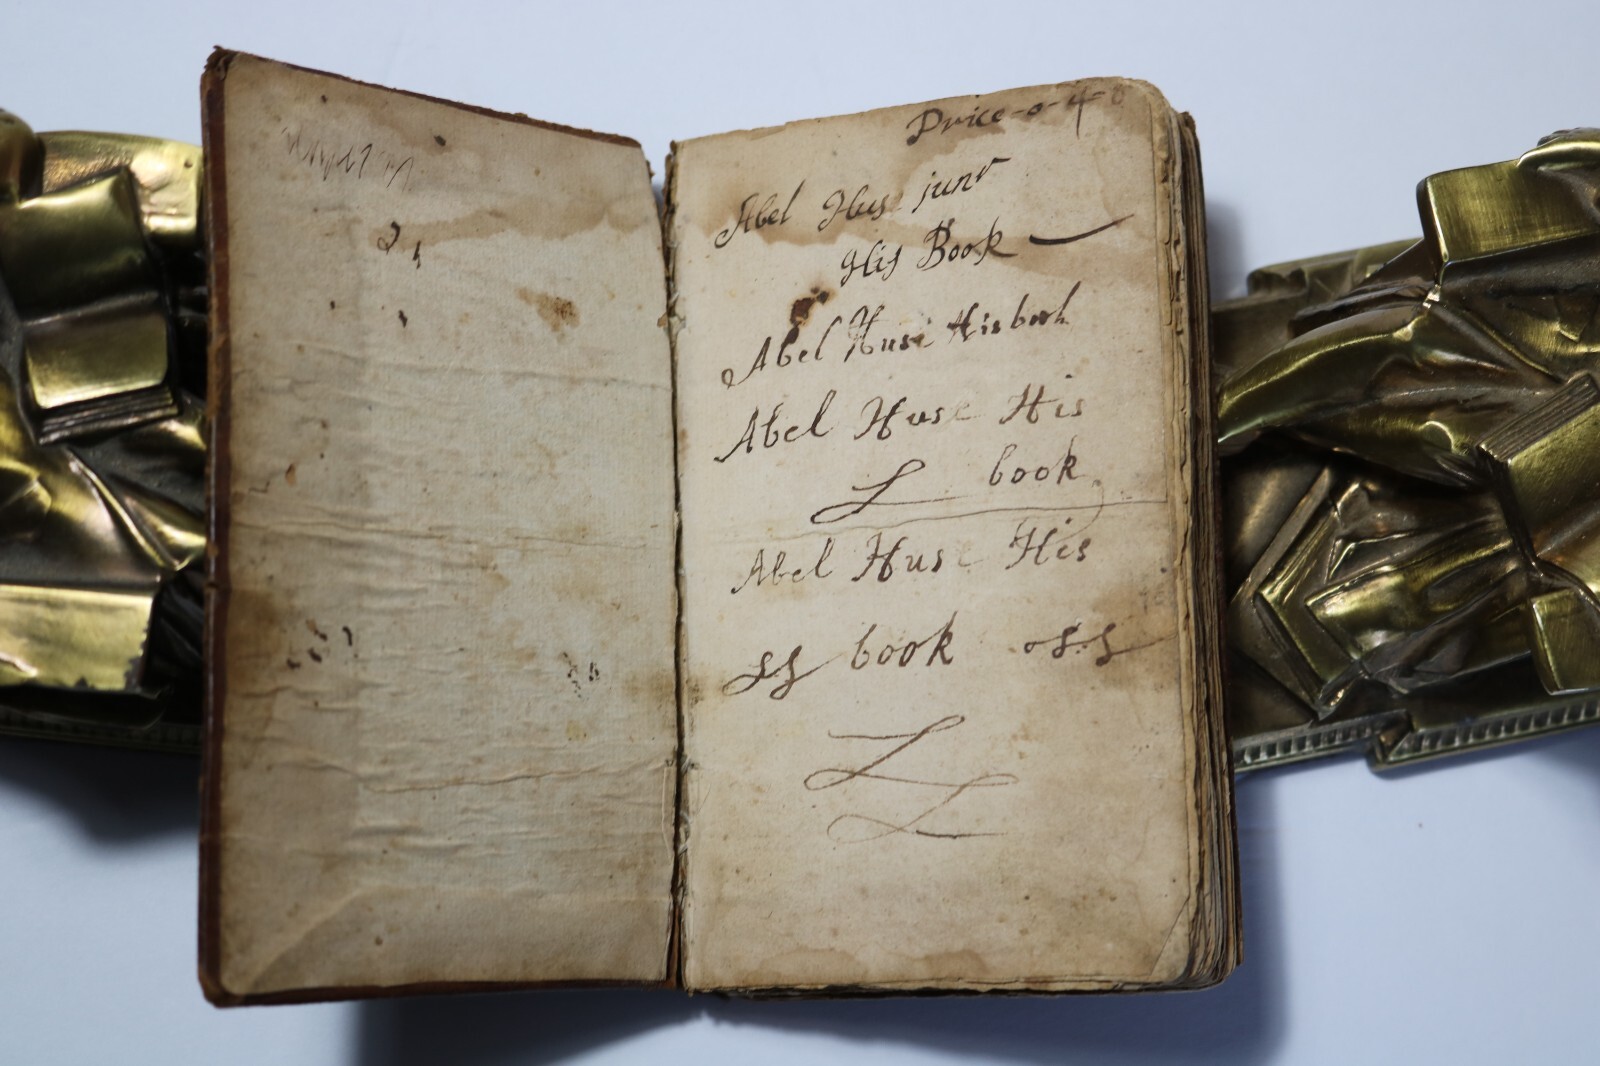 Price-0-4-0
Abel Huse junr
His Book
Abel Huse His book
Abel Huse His
book
Abel Huse His
book